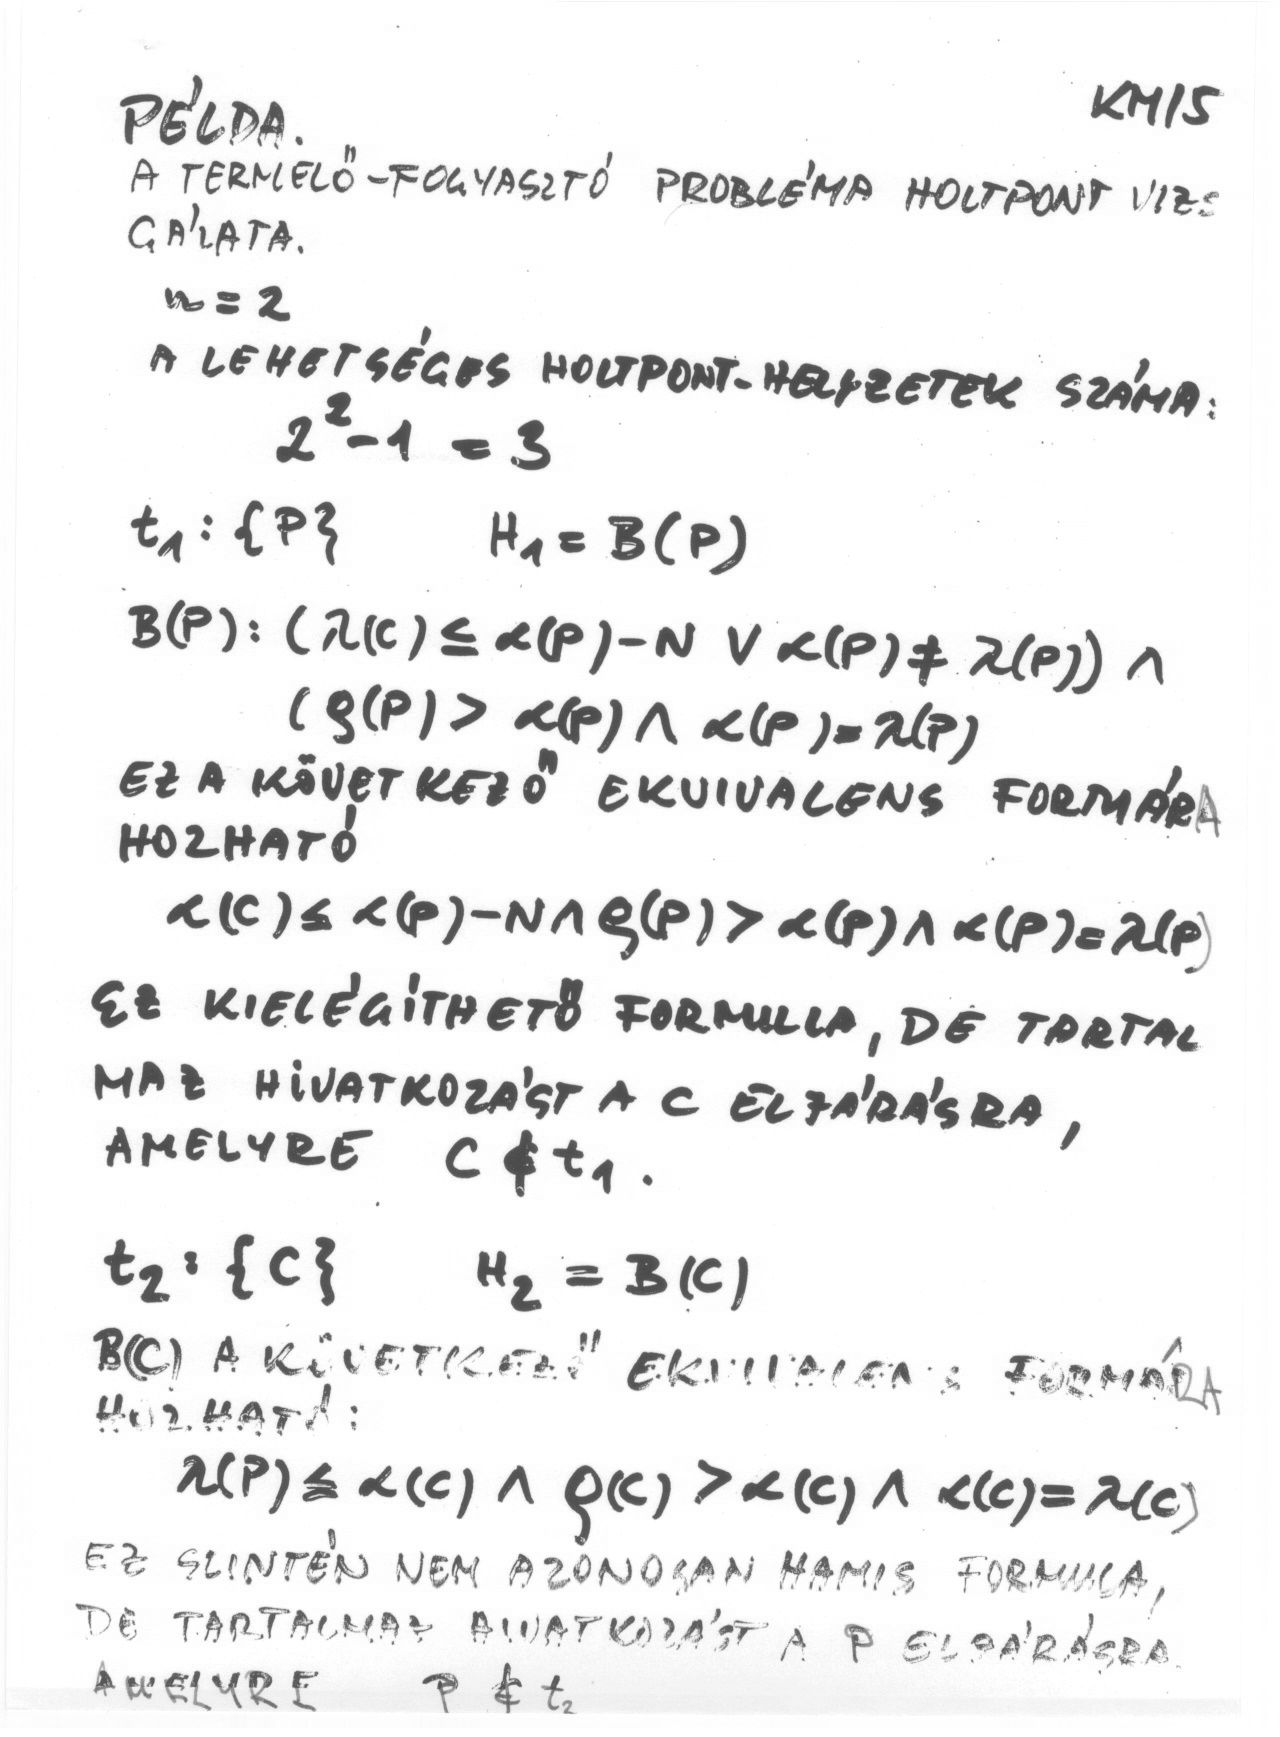 KM/5
PÉLDA.
A TERMELŐ-FOGYASZTÓ PROBLÉMA HOLTPONT VIZS
GÁLATA.
n = 2
A LEHETSÉGES HOLTPONT-HELYZETEK SZÁMA:
2²-1 = 3
t₁: {P} H₁ = B(P)
B(P): (λ(C) ≤ α(P)-N ∨ α(P) ≠ λ(P)) ∧
(ϱ(P) > α(P) ∧ α(P) = λ(P)
EZ A KÖVETKEZŐ EKVIVALENS FORMÁRA
HOZHATÓ
α(C) ≤ α(P)-N ∧ ϱ(P) > α(P) ∧ α(P) = λ(P)
EZ KIELÉGÍTHETŐ FORMULLA, DE TARTAL
MAZ HIVATKOZÁST A C ELJÁRÁSRA,
AMELYRE C ∉ t₁.
t₂: {C} H₂ = B(C)
B(C) A KÖVETKEZŐ EKVIVALENS FORMÁRA
HOZHATÓ:
λ(P) ≤ α(C) ∧ ϱ(C) > α(C) ∧ α(C) = λ(C)
EZ SZINTÉN NEM AZONOSAN HAMIS FORMULA,
DE TARTALMAZ HIVATKOZÁST A P ELJÁRÁSRA
AMELYRE P ∉ t₂